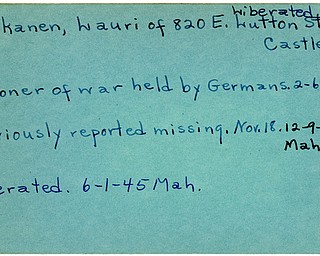 Liberated
kanen, Lauri of 820 E. Lutton St
Castle
oner of war held by Germans. 2-6
viously reported missing. Nov. 18. 12-9-
Mah
erated. 6-1-45 Mah.